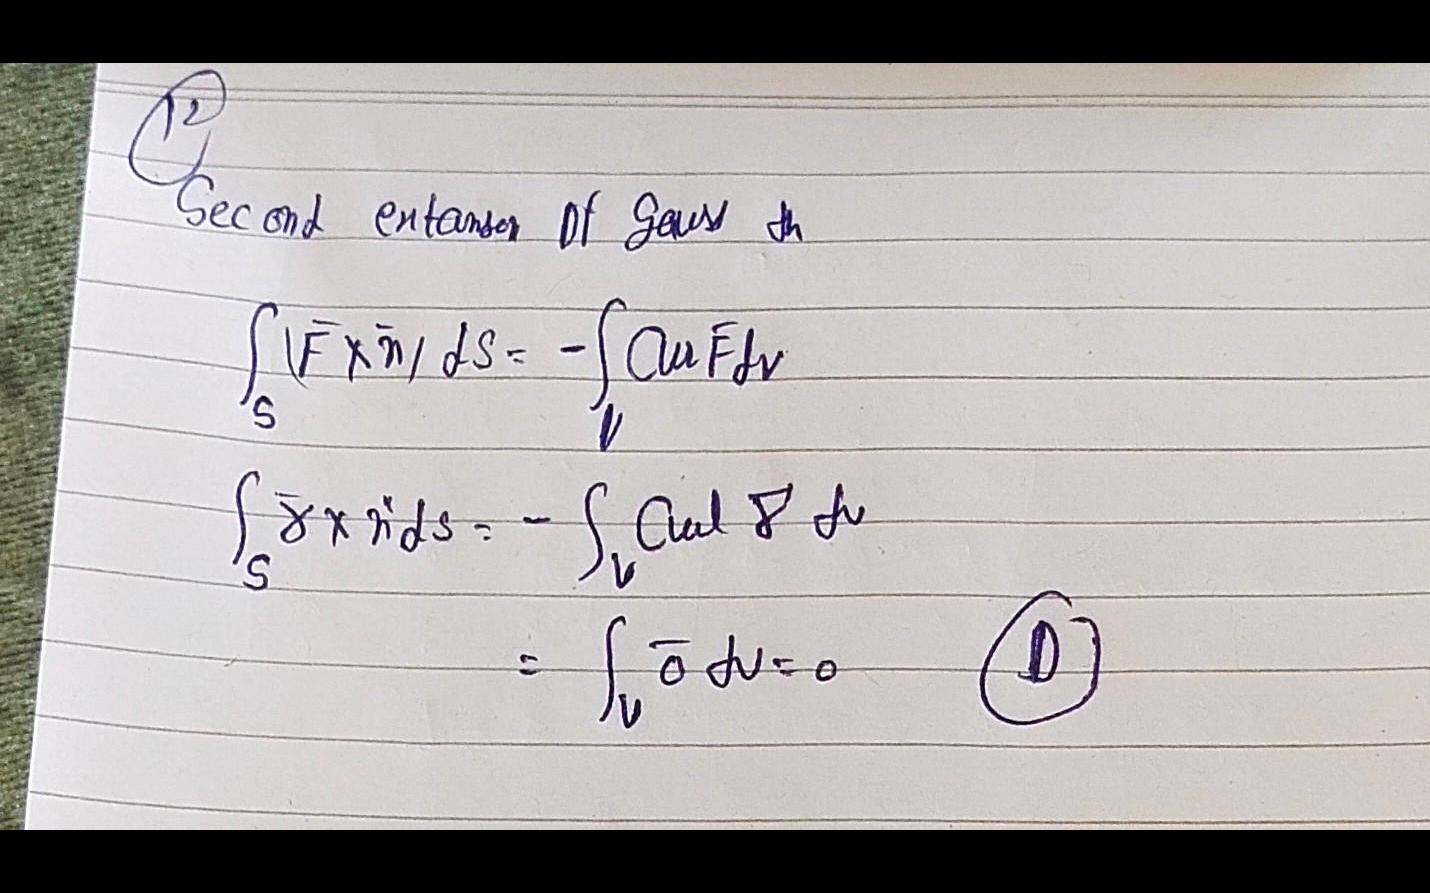 12
Second extansion Of Gauss th
∫_S (F̄ × n̄) ds = - ∫_V Curl F̄ dv
∫_S r̄ × n̂ ds = - ∫_V Curl r̄ dv
= ∫_V ō dv = 0 D